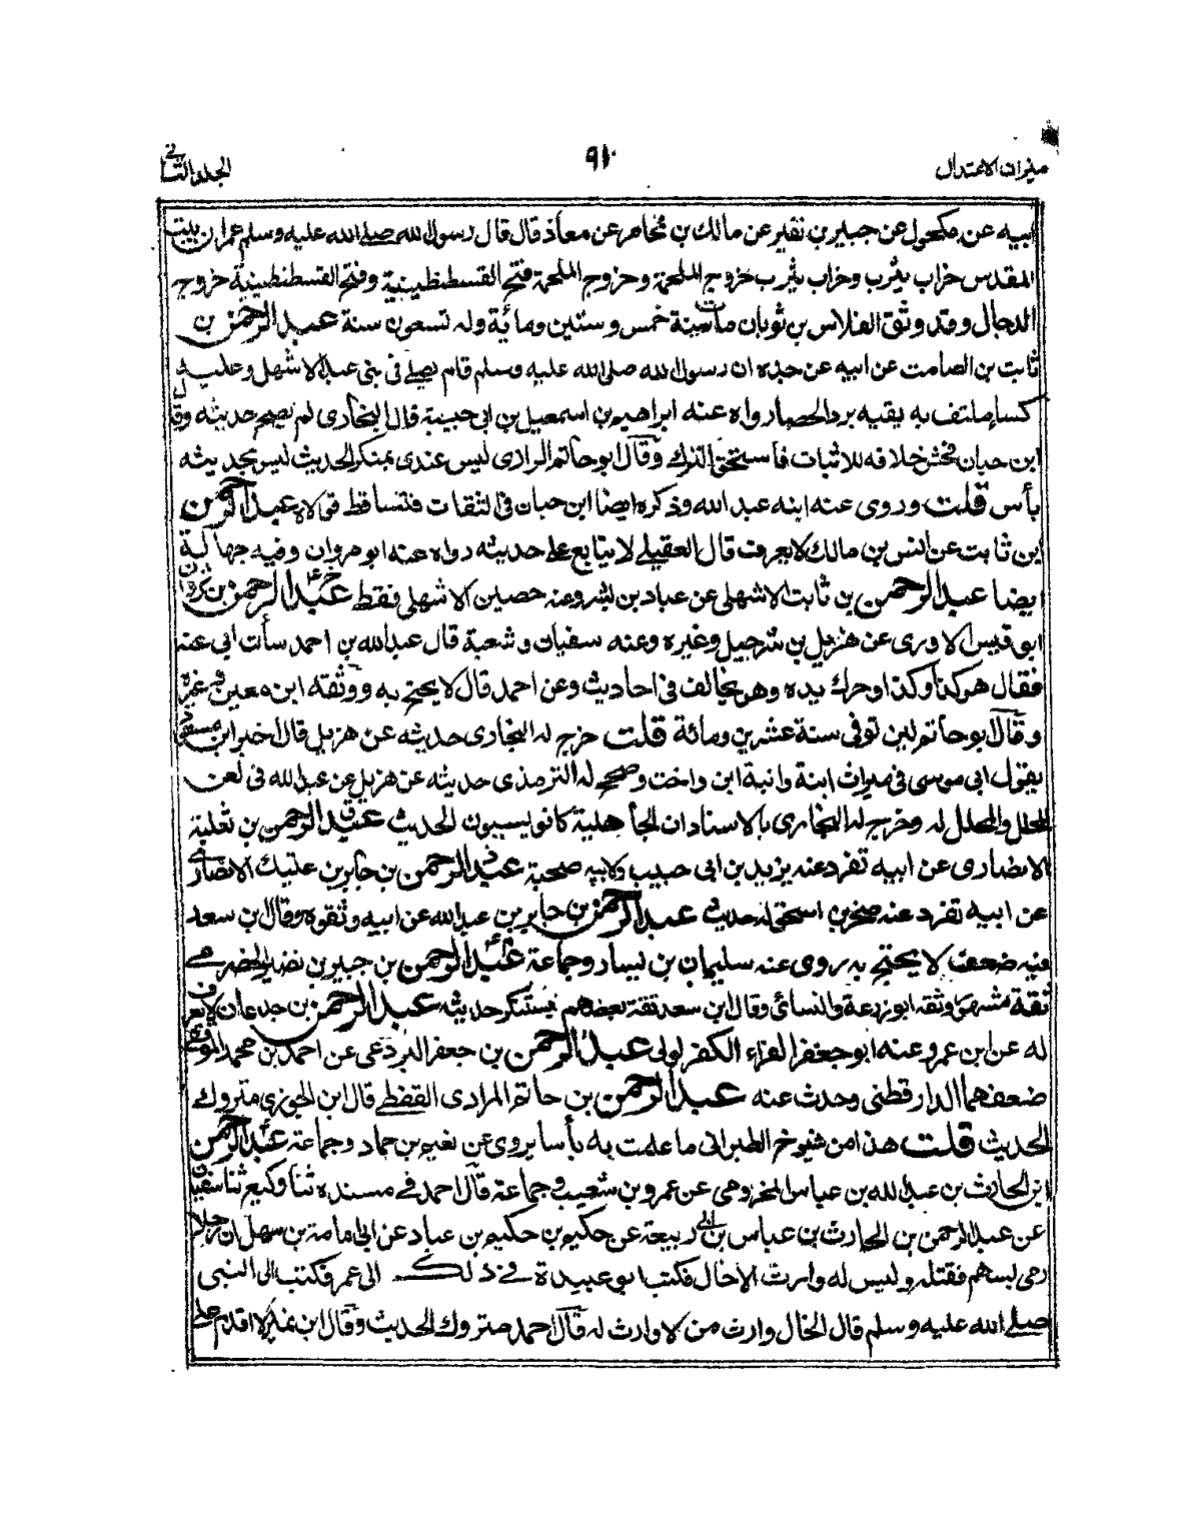 ميزان الاعتدال
٩١
الجلد الثانى
ابيه عن مكحول عن جبير بن نفير عن مالك بن يخامر عن معاذ قال قال رسول الله صلى الله عليه وسلم عمران بيت
المقدس خراب يثرب وخراب يثرب خروج الملحمة وخروج الملحمة فتح القسطنطينية وفتح القسطنطينية خروج
الدجال وقد وثق الفلاس بن ثوبان مات سنة خمس وستين ومائة وله تسعون سنة عبد الرحمن بن
ثابت بن الصامت عن ابيه عن جده ان رسول الله صلى الله عليه وسلم قام يصلى فى بنى عبد الاشهل وعليه
كساء ملتف به يقيه برد الحصا رواه عنه ابراهيم بن اسمعيل بن ابى حبيبة قال البخارى لم يصح حديثه وقال
ابن حبان فحش خلافه للاثبات فاستحق الترك وقال ابو حاتم الرازى ليس عندى بمنكر الحديث ليس بحديثه
بأس قلت وروى عنه ابنه عبد الله وذكره ايضا ابن حبان فى الثقات فتساقط قولاه عبد الرحمن
ابن ثابت عن انس بن مالك لا يعرف قال العقيلى لا يتابع على حديثه رواه عنه ابو مروان وفيه جهالة
ايضا عبد الرحمن بن ثابت الاشهلى عن عباد بن بشر وعنه حصين الاشهلى فقط عبد الرحمن بن ثروان
ابو قيس الاودى عن هزيل بن شرحبيل وغيره وعنه سفيان وشعبة قال عبد الله بن احمد سألت ابى عنه
فقال هو كذا وكذا وحرك يده وهو يخالف فى احاديث وعن احمد قال لا يحتج به ووثقه ابن معين وغيره
وقال ابو حاتم لين توفى سنة عشرين ومائة قلت خرج له البخارى حديثه عن هزيل قال اخبر ابن مسعود
بقول ابى موسى فى ميراث ابنة وابنة ابن واخت وصحح له الترمذى حديثه عن هزيل عن عبد الله فى لعن
المحلل والمحلل له وخرج له البخارى بالاسناد ان الجاهلية كانو يسيبون الحديث عبد الرحمن بن ثعلبة
الانصارى عن ابيه تفرد عنه يزيد بن ابى حبيب ولابيه صحبة عبد الرحمن بن جابر بن عتيك الانصارى
عن ابيه تفرد عنه صخر بن اسحق له حديث عبد الرحمن بن جابر بن عبد الله عن ابيه وثقوه وقال ابن سعد
فيه ضعف لا يحتج به روى عنه سليمان بن يسار وجماعة عبد الرحمن بن جبير بن نفير الحضرمى
ثقة مشهور وثقه ابو زرعة والنسائى وقال ابن سعد ثقة بعضهم يستنكر حديثه عبد الرحمن بن جدعان لا يعرف
له عن ابن عمرو عنه ابو جعفر الفراء الكفر لولى عبد الرحمن بن جعفر البردعى عن احمد بن محمد الموقفى
ضعفهما الدارقطنى وحدث عنه عبد الرحمن بن حاتم المرادى القفطى قال ابن الجوزى متروك
الحديث قلت هذا من شيوخ الطبرانى ما علمت به بأسا يروى عن نعيم بن حماد وجماعة عبد الرحمن
ابن الحارث بن عبد الله بن عياش المخزومى عن عمرو بن شعيب وجماعة قال احمد فى مسنده ثنا وكيع ثنا سفيان
عن عبد الرحمن بن الحارث بن عياش بن ابى ربيعة عن حكيم بن حكيم بن عباد عن ابى امامة بن سهل ان رجلا
رمى بسهم فقتله وليس له وارث الا خال فكتب ابو عبيدة فى ذلك الى عمر فكتب ان النبى
صلى الله عليه وسلم قال الخال وارث من لا وارث له قال احمد متروك الحديث وقال ابن نمير لا اقدم على